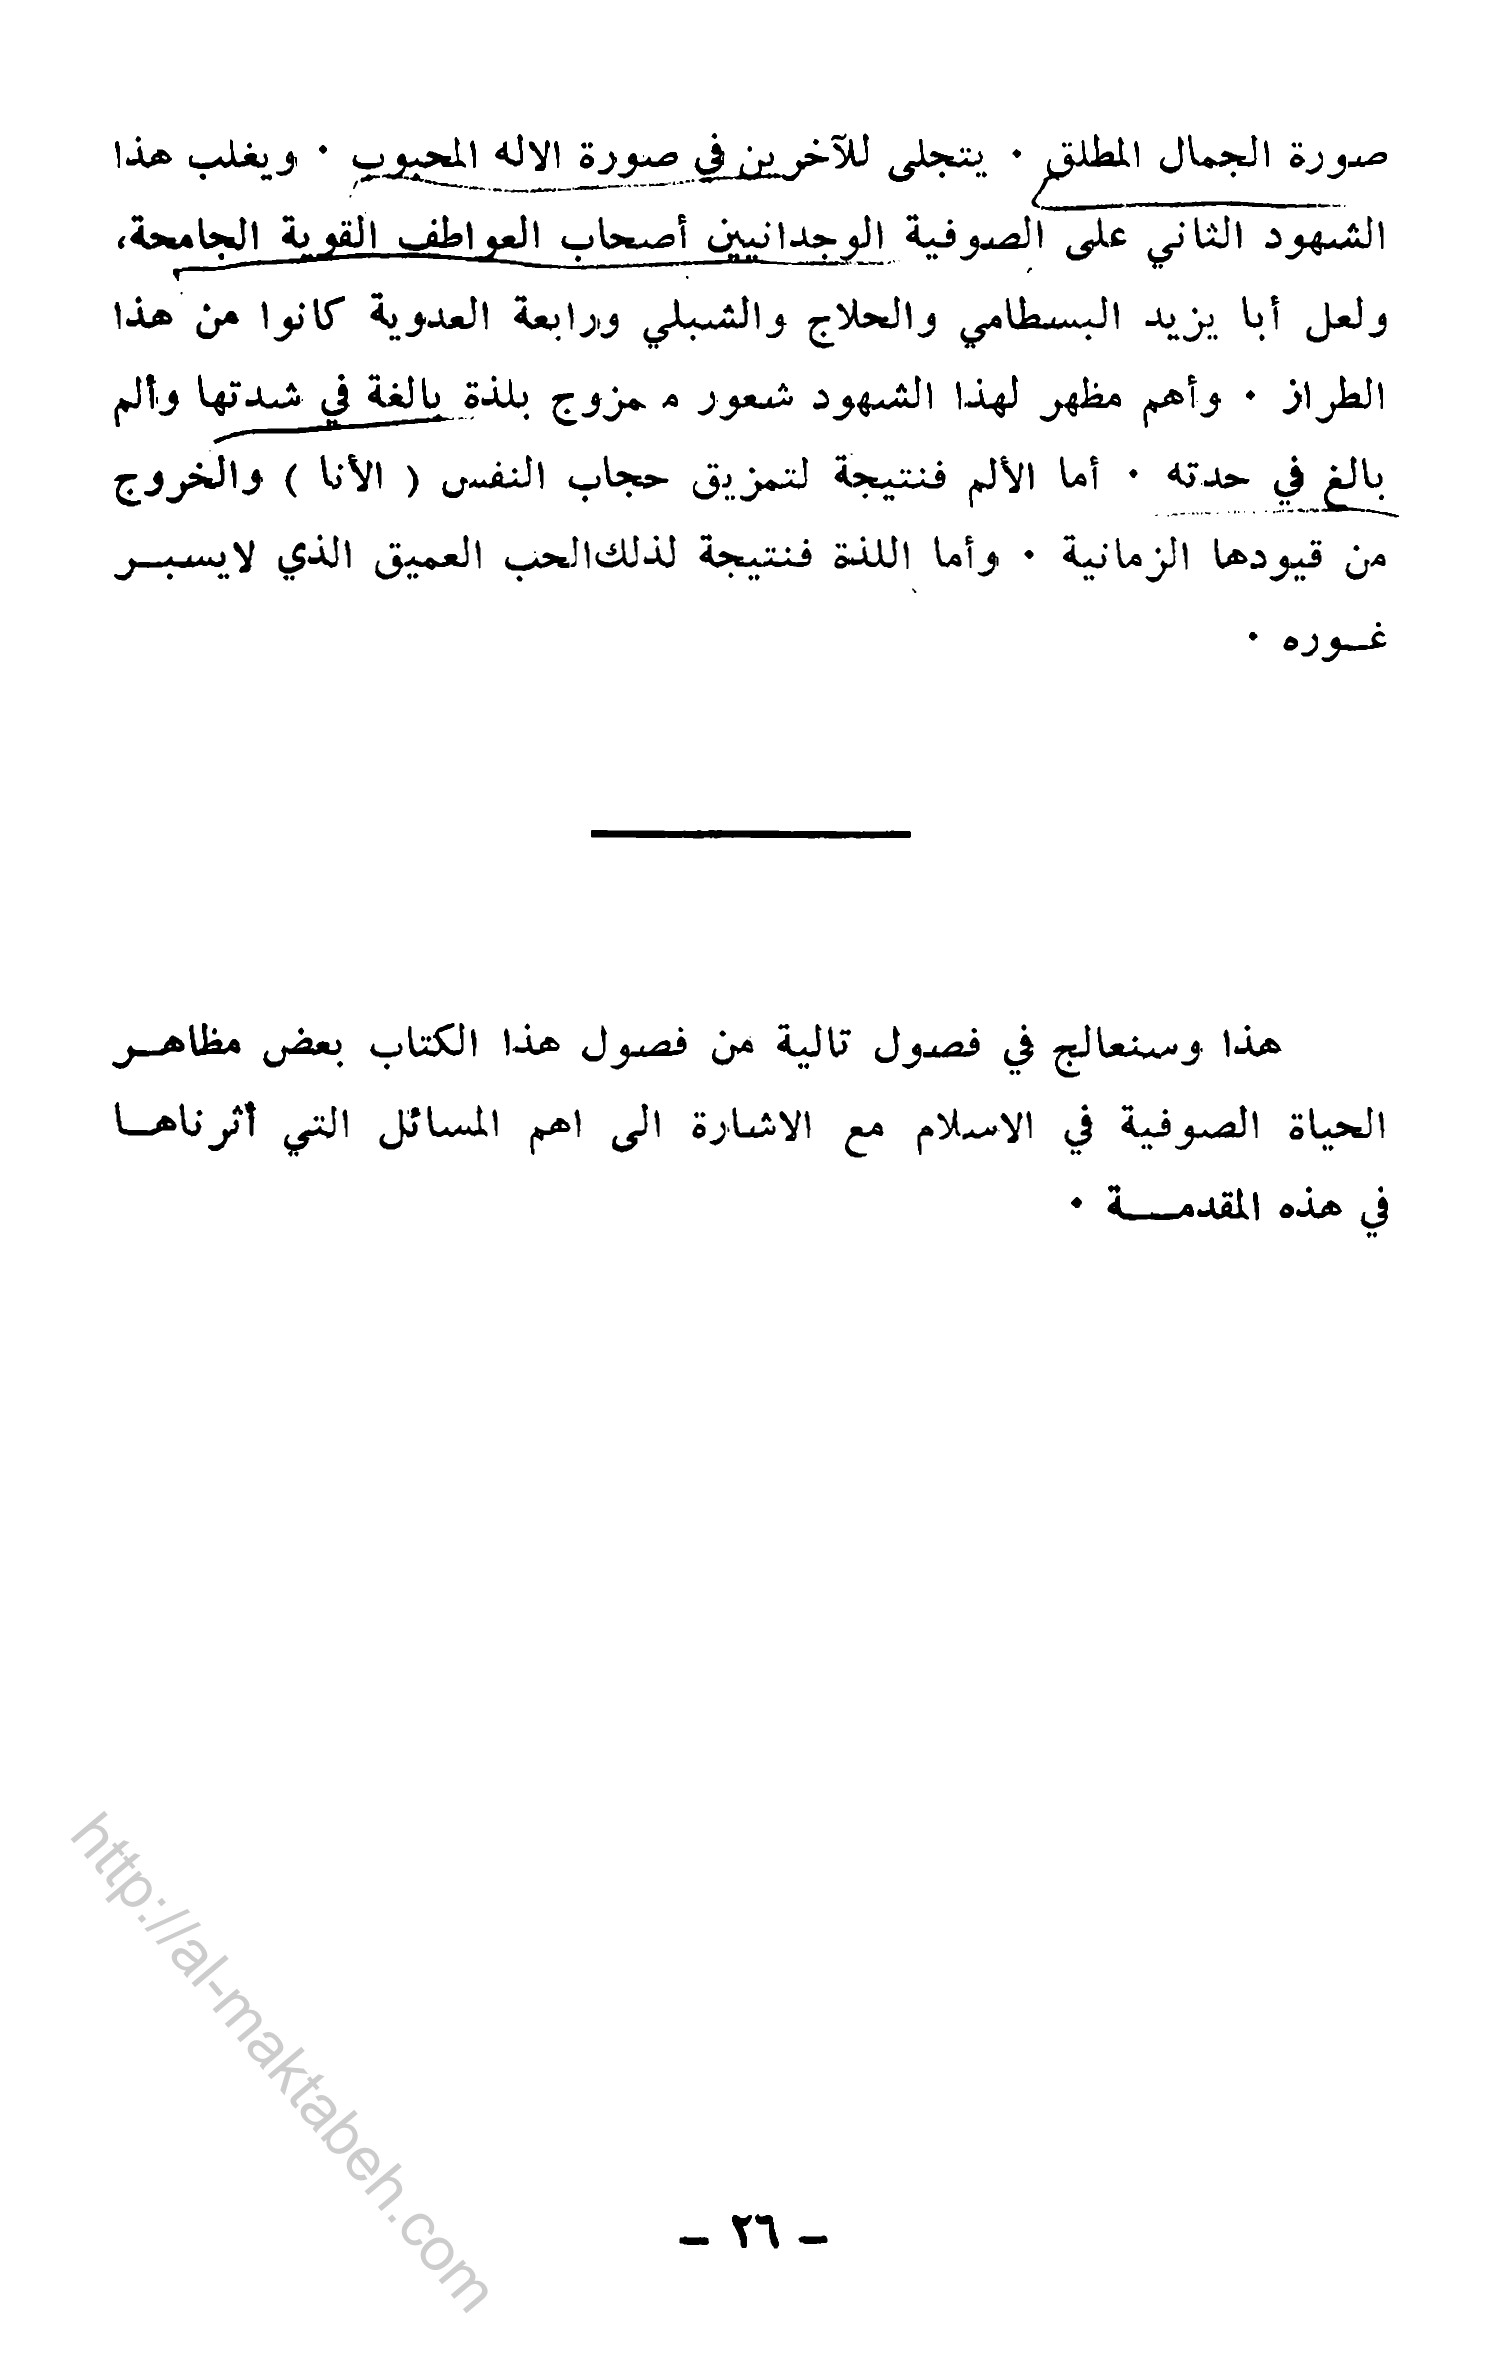 صورة الجمال المطلق ٠ يتجلى للآخرين في صورة الاله المحبوب ٠ ويغلب هذا
الشهود الثاني على الصوفية الوجدانيين أصحاب العواطف القوية الجامحة،
ولعل أبا يزيد البسطامي والحلاج والشبلي ورابعة العدوية كانوا من هذا
الطراز ٠ وأهم مظهر لهذا الشهود شعور ممزوج بلذة بالغة في شدتها وألم
بالغ في حدته ٠ أما الألم فنتيجة لتمزيق حجاب النفس ( الأنا ) والخروج
من قيودها الزمانية ٠ وأما اللذة فنتيجة لذلك الحب العميق الذي لايسبـر
غـوره ٠
هذا وسنعالج في فصول تالية من فصول هذا الكتاب بعض مظاهـر
الحياة الصوفية في الاسلام مع الاشارة الى اهم المسائل التي أثرناهـا
في هذه المقدمـــة ٠
http://al-maktabeh.com
– ٢٦ –